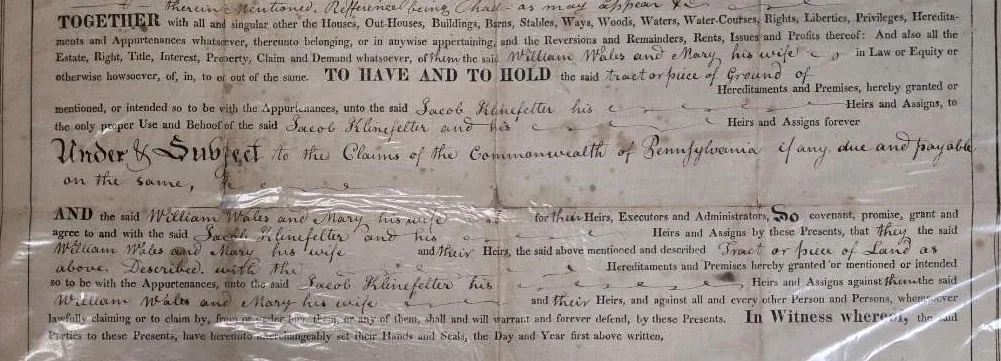 therein Mentioned. Refference being had as may appear &
TOGETHER with all and singular other the Houses, Out-Houses, Buildings, Barns, Stables, Ways, Woods, Waters, Water-Courses, Rights, Liberties, Privileges, Heredita-
ments and Appurtenances whatsoever, thereunto belonging, or in anywise appertaining, and the Reversions and Remainders, Rents, Issues and Profits thereof: And also all the
Estate, Right, Title, Interest, Property, Claim and Demand whatsoever, of them the said William Wales and Mary his wife in Law or Equity or
otherwise howsoever, of, in, to or out of the same. TO HAVE AND TO HOLD the said tract or piece of Ground of
Hereditaments and Premises, hereby granted or
mentioned, or intended so to be with the Appurtenances, unto the said Jacob Klinefelter his Heirs and Assigns, to
the only proper Use and Behoof of the said Jacob Klinefelter and his Heirs and Assigns forever
Under & Subject to the Claims of the Commonwealth of Pennsylvania if any due and payable
on the same,
AND the said William Wales and Mary his wife for their Heirs, Executors and Administrators, Do covenant, promise, grant and
agree to and with the said Jacob Klinefelter and his Heirs and Assigns by these Presents, that they the said
William Wales and Mary his wife and their Heirs, the said above mentioned and described Tract or piece of Land as
above Described with the Hereditaments and Premises hereby granted or mentioned or intended
so to be with the Appurtenances, unto the said Jacob Klinefelter his Heirs and Assigns against them the said
William Wales and Mary his wife and their Heirs, and against all and every other Person and Persons, whomsoever
lawfully claiming or to claim by, from or under them, or any of them, shall and will warrant and forever defend, by these Presents. In Witness whereof, the said
Parties to these Presents, have hereunto interchangeably set their Hands and Seals, the Day and Year first above written,